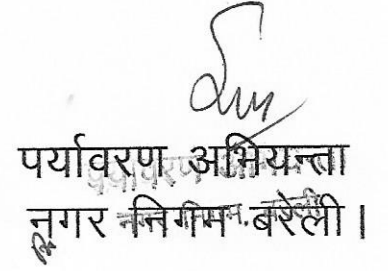 पर्यावरण अभियन्ता
नगर निगम, बरेली।